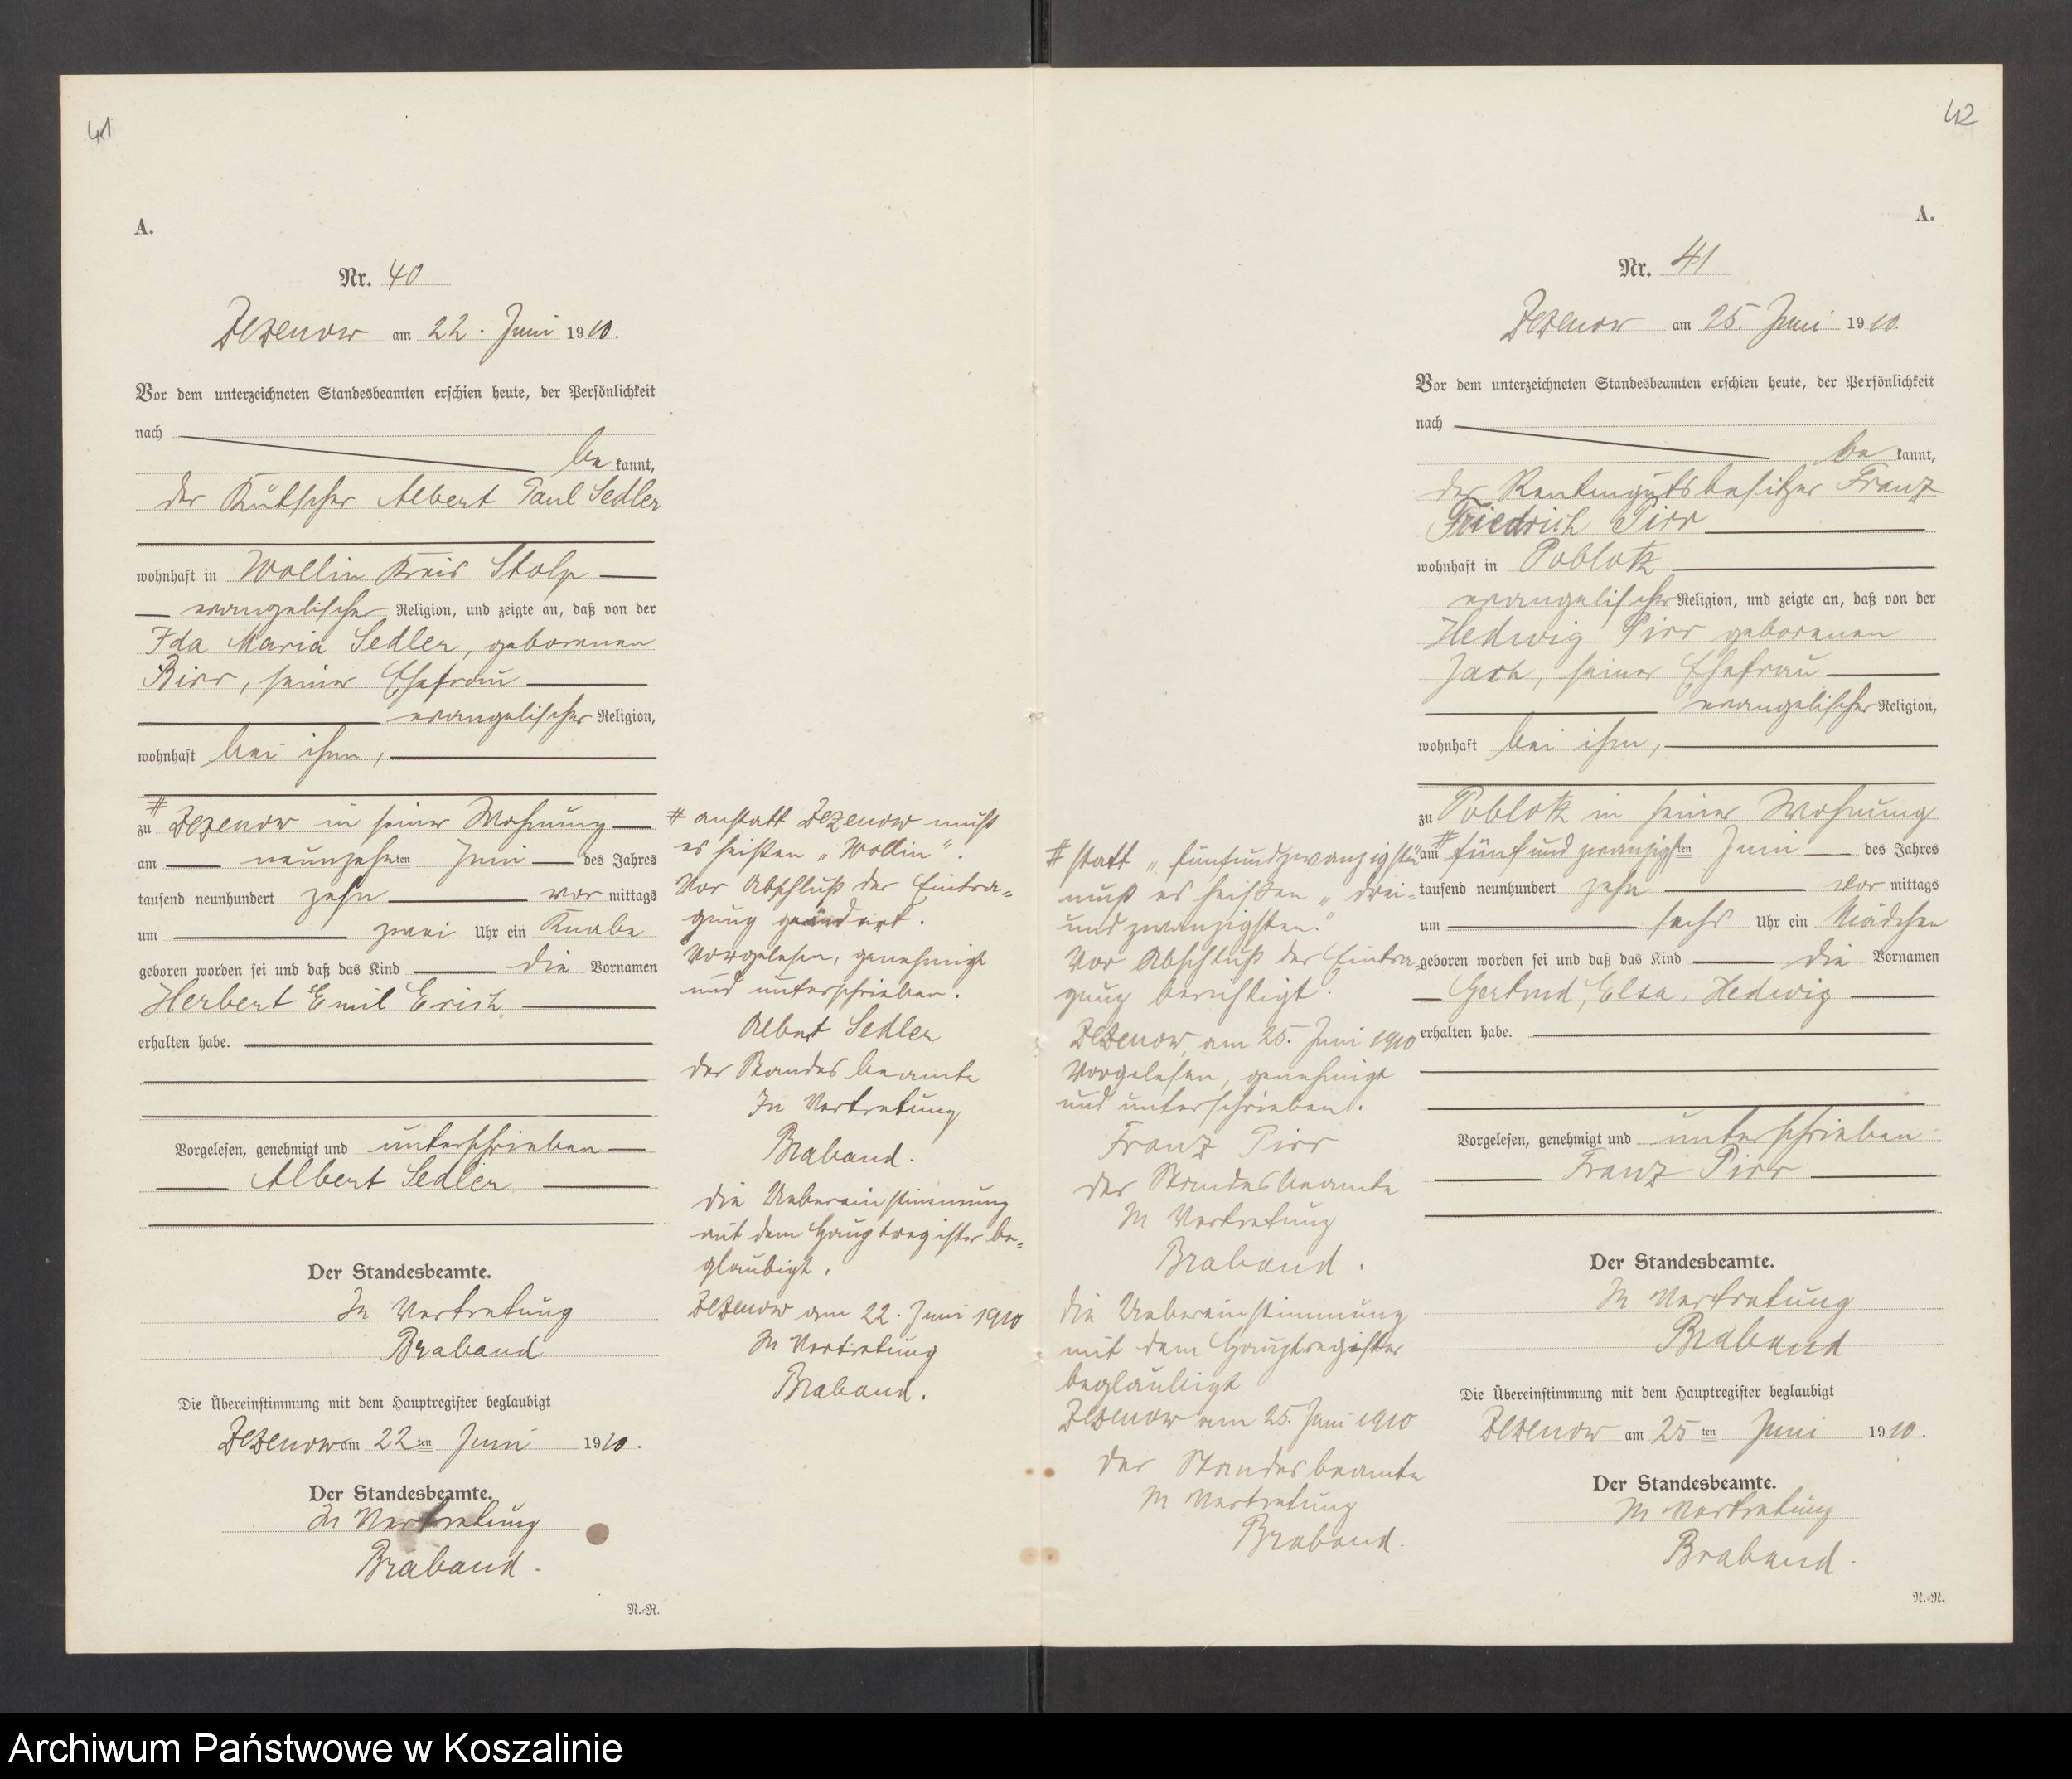 41
A.
Nr. 40
Dezenow am 22. Juni 1910.
Vor dem unterzeichneten Standesbeamten erschien heute, der Persönlichkeit
nach
be kannt,
der Kutscher Albert Paul Sedler
wohnhaft in Wollin Kreis Stolp
evangelischer Religion, und zeigte an, daß von der
Ida Maria Sedler, geborenen
Birr, seiner Ehefrau
evangelischer Religion,
wohnhaft bei ihm,
# zu Dezenow in seiner Wohnung
am neunzehnten Juni des Jahres
tausend neunhundert zehn vor mittags
um zwei Uhr ein Knabe
geboren worden sei und daß das Kind die Vornamen
Herbert Emil Erich
erhalten habe.
Vorgelesen, genehmigt und unterschrieben
Albert Sedler
Der Standesbeamte.
In Vertretung
Braband
Die Übereinstimmung mit dem Hauptregister beglaubigt
Dezenow am 22ten Juni 1910.
Der Standesbeamte.
In Vertretung
Braband.
N.=R.
# anstatt Dezenow muß
es heißen „Wollin".
Vor Abschluß der Eintra=
gung geändert.
Vorgelesen, genehmigt
und unterschrieben.
Albert Sedler
der Standesbeamte
In Vertretung
Braband.
die Uebereinstimmung
mit dem Hauptregister be=
glaubigt.
Dezenow am 22. Juni 1910
In Vertretung
Braband.
42
A.
Nr. 41
Dezenow am 25. Juni 1910.
Vor dem unterzeichneten Standesbeamten erschien heute, der Persönlichkeit
nach
be kannt,
der Rentengutsbesitzer Franz
Friedrich Pirr
wohnhaft in Poblotz
evangelischer Religion, und zeigte an, daß von der
Hedwig Pirr geborenen
Jach, seiner Ehefrau
evangelischer Religion,
wohnhaft bei ihm,
zu Poblotz in seiner Wohnung
# am fünfundzwanzigsten Juni des Jahres
tausend neunhundert zehn vor mittags
um sechs Uhr ein Mädchen
geboren worden sei und daß das Kind die Vornamen
Gertrud, Elsa, Hedwig
erhalten habe.
Vorgelesen, genehmigt und unterschrieben
Franz Pirr
Der Standesbeamte.
In Vertretung
Braband
Die Übereinstimmung mit dem Hauptregister beglaubigt
Dezenow am 25ten Juni 1910.
Der Standesbeamte.
In Vertretung
Braband.
N.=R.
# statt „fünfundzwanzigsten
muß es heißen „drei=
und zwanzigsten."
Vor Abschluß der Eintra=
gung berichtigt.
Dezenow, am 25. Juni 1910
Vorgelesen, genehmigt
und unterschrieben.
Franz Pirr
der Standesbeamte
In Vertretung
Braband.
die Uebereinstimmung
mit dem Hauptregister
beglaubigt
Dezenow am 25. Juni 1910
der Standesbeamte
In Vertretung
Braband.
Archiwum Państwowe w Koszalinie